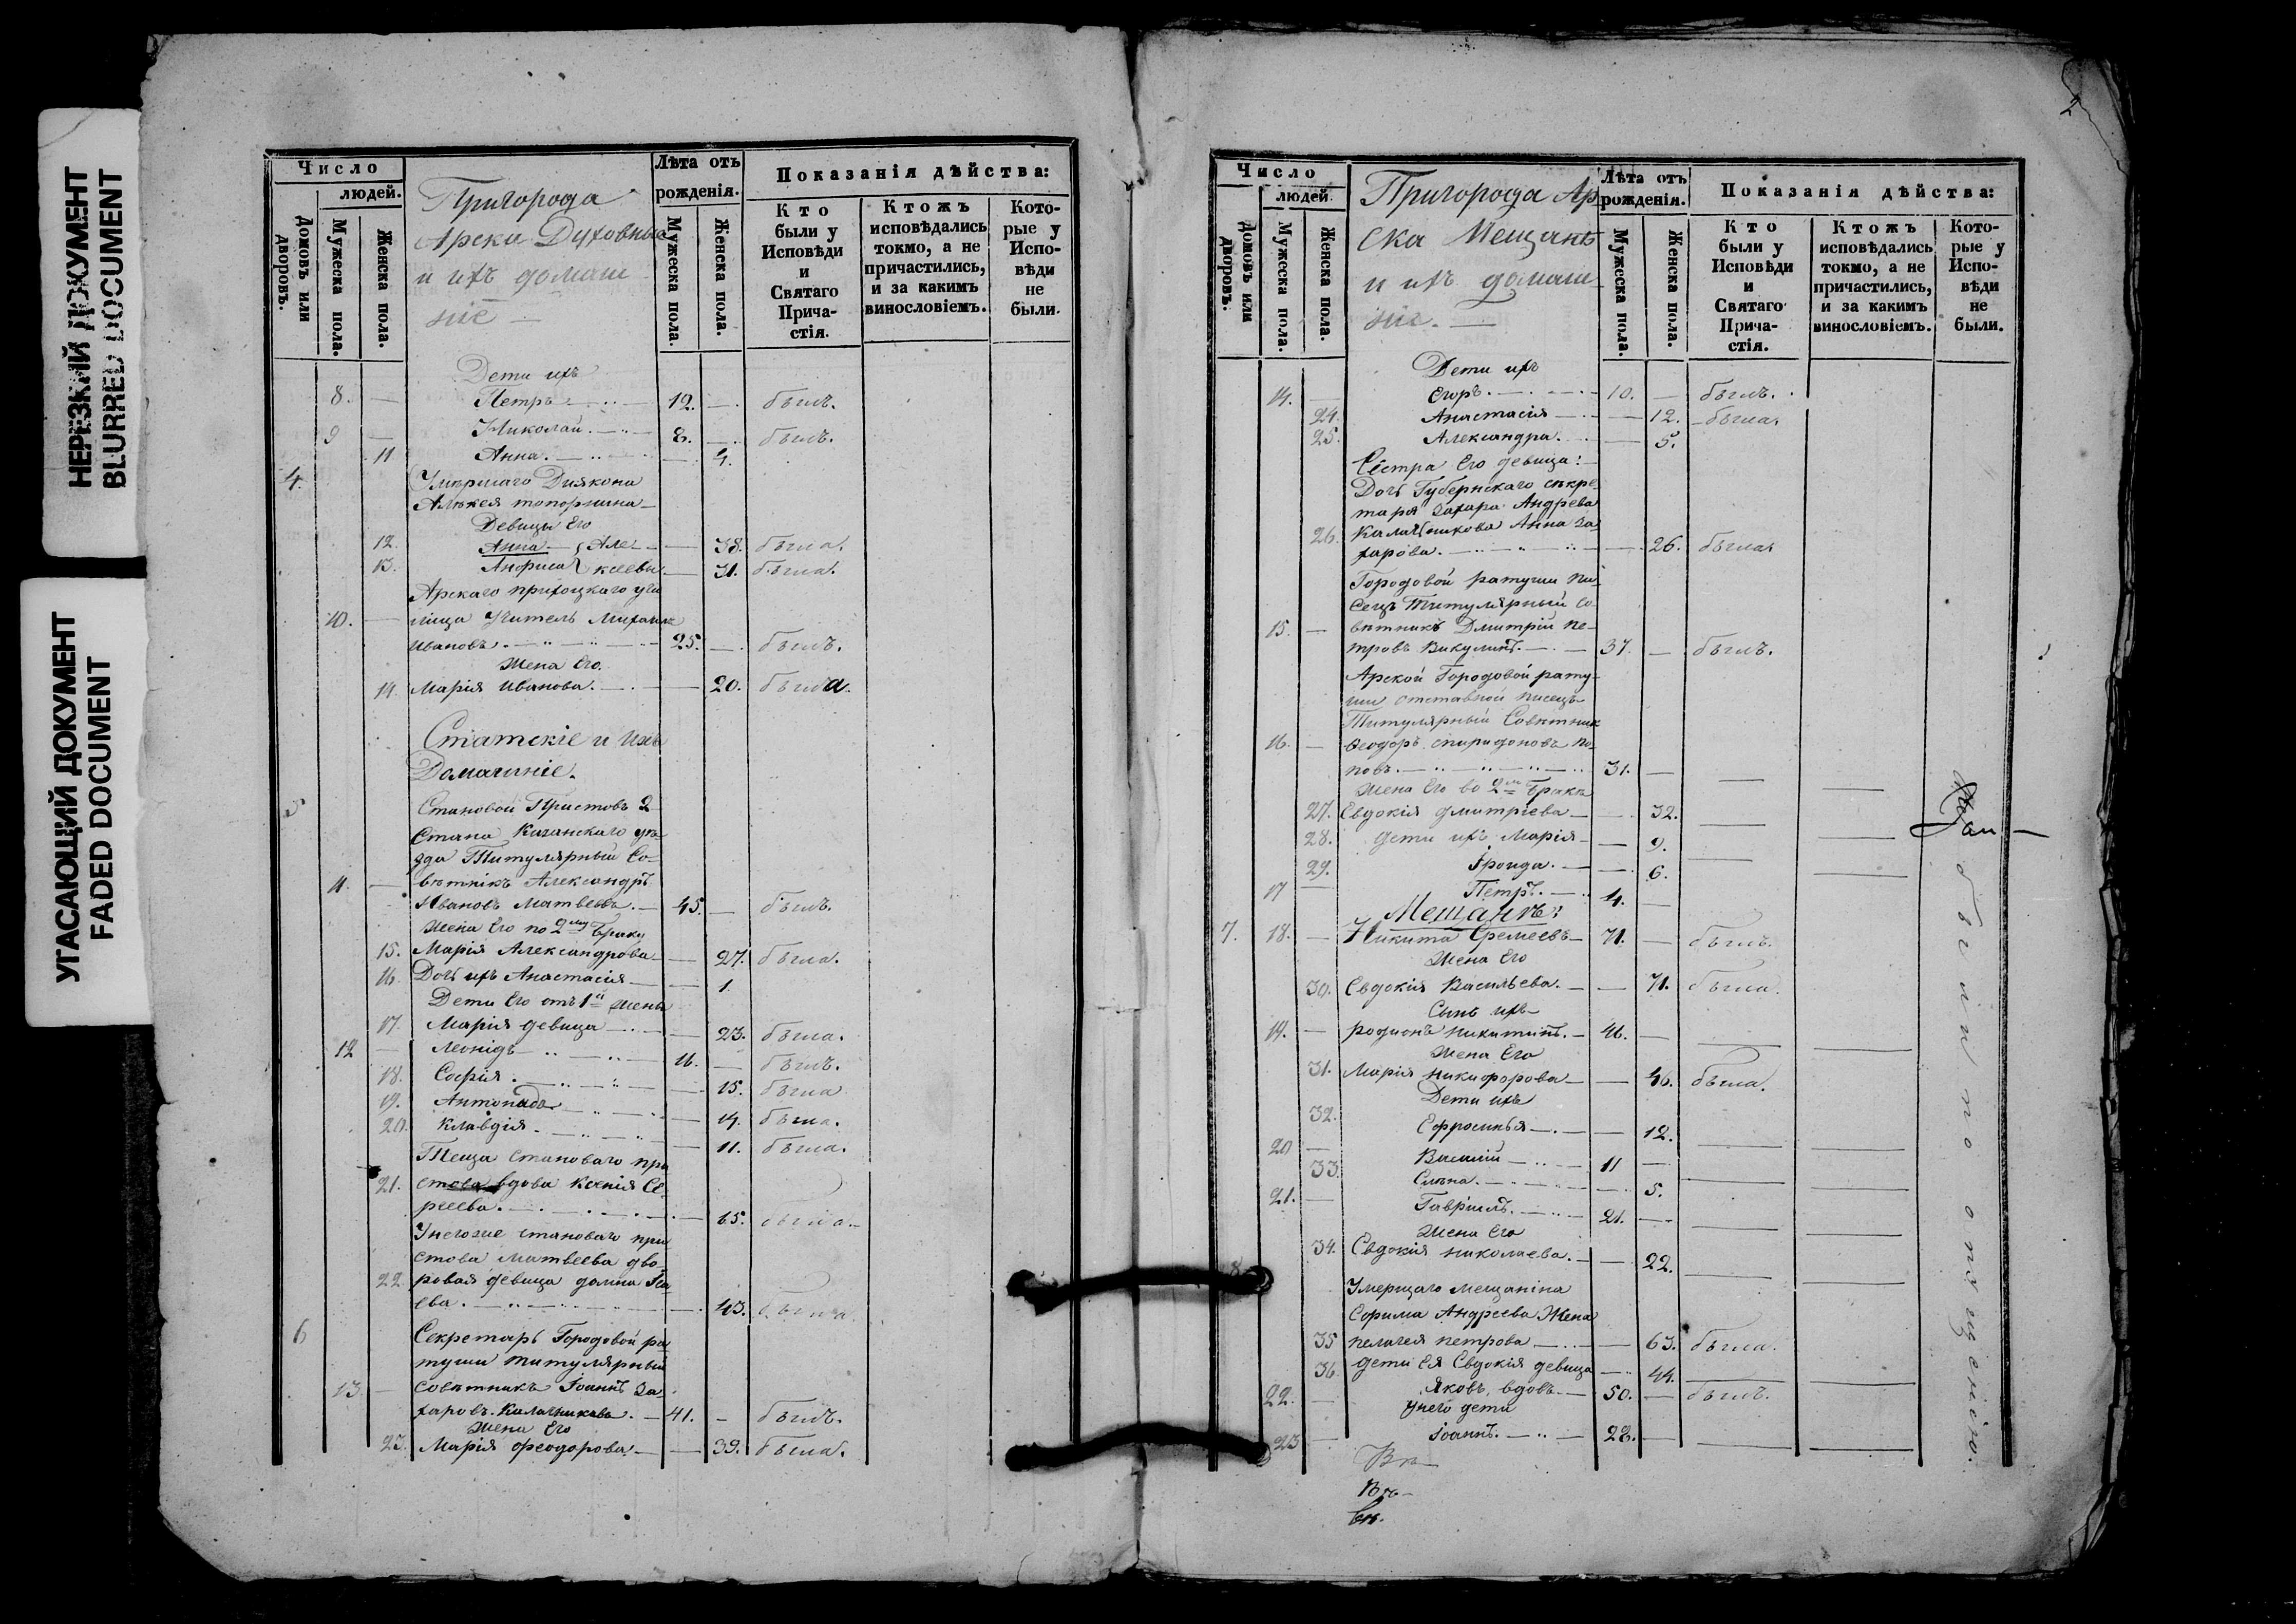 НЕРЕЗКИЙ ДОКУМЕНТ
BLURRED DOCUMENT
УГАСАЮЩИЙ ДОКУМЕНТ
FADED DOCUMENT
Число
людей.
Домовъ или дворовъ.
Мужеска пола.
Женска пола.
Пригорода
Арска Духовныя
и ихъ домаш
ніе —
Лѣта отъ рожденія.
Мужеска пола.
Женска пола.
Показанія дѣйства:
Кто были у Исповѣди и Святаго Прича-стія.
Ктожъ исповѣдались токмо, а не причастились, и за какимъ винословіемъ.
Кото-рые у Испо-вѣди не были.
Дети ихъ
8. — Петръ — 12. — былъ.
9 — Николай. — 8. — былъ.
11 Анна. — 4.
4. Умершаго Диякона
Алексея топорнина
Девицы Его
12. Анна — Але- — 38. была.
13. Анфиса ксеевы — 31. была.
Арскаго приходскаго учи
10. — лища Учитель Михаилъ
Ивановъ. — 25. — былъ.
Жена Его
14. Марія Иванова. — 20. была.
Статскіе и Ихъ
Домашніе.
5 Становой Приставъ 2
Стана Казанскаго уѣ
зда Титулярный Со-
11. — вѣтникъ Александръ
Ивановъ Матвеевъ. — 45. — былъ.
Жена Его по 2му Браку
15. Марія Александрова — 27. была.
16. Дочь ихъ Анастасія — 1.
Дети Его отъ 1й Жены
17. Марія девица — 23. была.
12 — Леонидъ — 16. — былъ.
18. Софія. — 15. была
19. — 14. была.
20. Клавдія. — 11. была.
Теща Становаго при
21. става вдова Ксенія Се
ргеева. — 65. была.
Унегоже становаго при
става Матвеева дво-
22 ровая девица домна
ева. — 43. была.
6 Секретарь Городовой ра
туши титулярный
13. — советникъ Іоаннъ За-
харовъ. Калашниковъ. — 41. — былъ.
Жена Его
23. Марія Феодорова. — 39. была.
2
Число
людей.
Домовъ или дворовъ.
Мужеска пола.
Женска пола.
Пригорода Ар
ска Мещанъ
и ихъ домаш
ніе. —
Лѣта отъ рожденія.
Мужеска пола.
Женска пола.
Показанія дѣйства:
Кто были у Исповѣди и Святаго Прича-стія.
Ктожъ исповѣдались токмо, а не причастились, и за какимъ винословіемъ.
Кото-рые у Испо-вѣди не были.
Дети ихъ
14. — Егоръ. — 10. — былъ.
24. Анастасія — 12. была.
25. Александра. — 5.
Сестра Его девица:
Дочь Губернскаго секре
таря Захара Андрева
26. Калашникова Анна За-
харова. — 26. была.
Городовой ратуши пи
сецъ Титулярный Со-
15. — вѣтникъ Дмитрій пе-
тровъ Викулинъ. — 37. — былъ.
Арской Городовой рату-
ши отставной писецъ
Титулярный Совѣтник
16. — Феодоръ спиридоновъ по-
повъ. — 31. —
Жена Его во 2мъ Бракѣ
27. Евдокія дмитріева — 32.
28. дети ихъ Марія — 9.
29. Ираида. — 6.
17 — Петръ. — 4. —
Мещанъ:
7. 18. — Никита Еремеевъ — 71. — былъ.
Жена Его
30. Евдокія Васильева. — 71. была.
Сынъ ихъ
19. — родионъ никитинъ. — 46. —
Жена Его
31. Марія никифорова — 46. была.
Дети ихъ
32. Ефросинья — 12.
20 — Василій — 11 —
33. Елѣна. — 5.
21. — Гавріилъ. — 21. —
Жена Его
34. Евдокія николаева. — 22.
8 Умершаго мещанина
Андреева Жена
35 пелагея петрова — 63. была.
36. дети Ея Евдокія девица — 44.
22. — Яковъ вдовъ — 50. — былъ.
Унего дети
23 — Іоаннъ. — 28. —
небыли по опущенію.
Вѣ
Вѣ